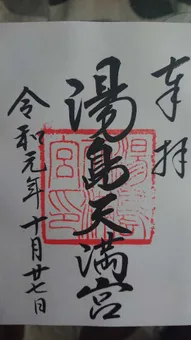 奉拝
湯島天満宮
令和元年十月廿七日